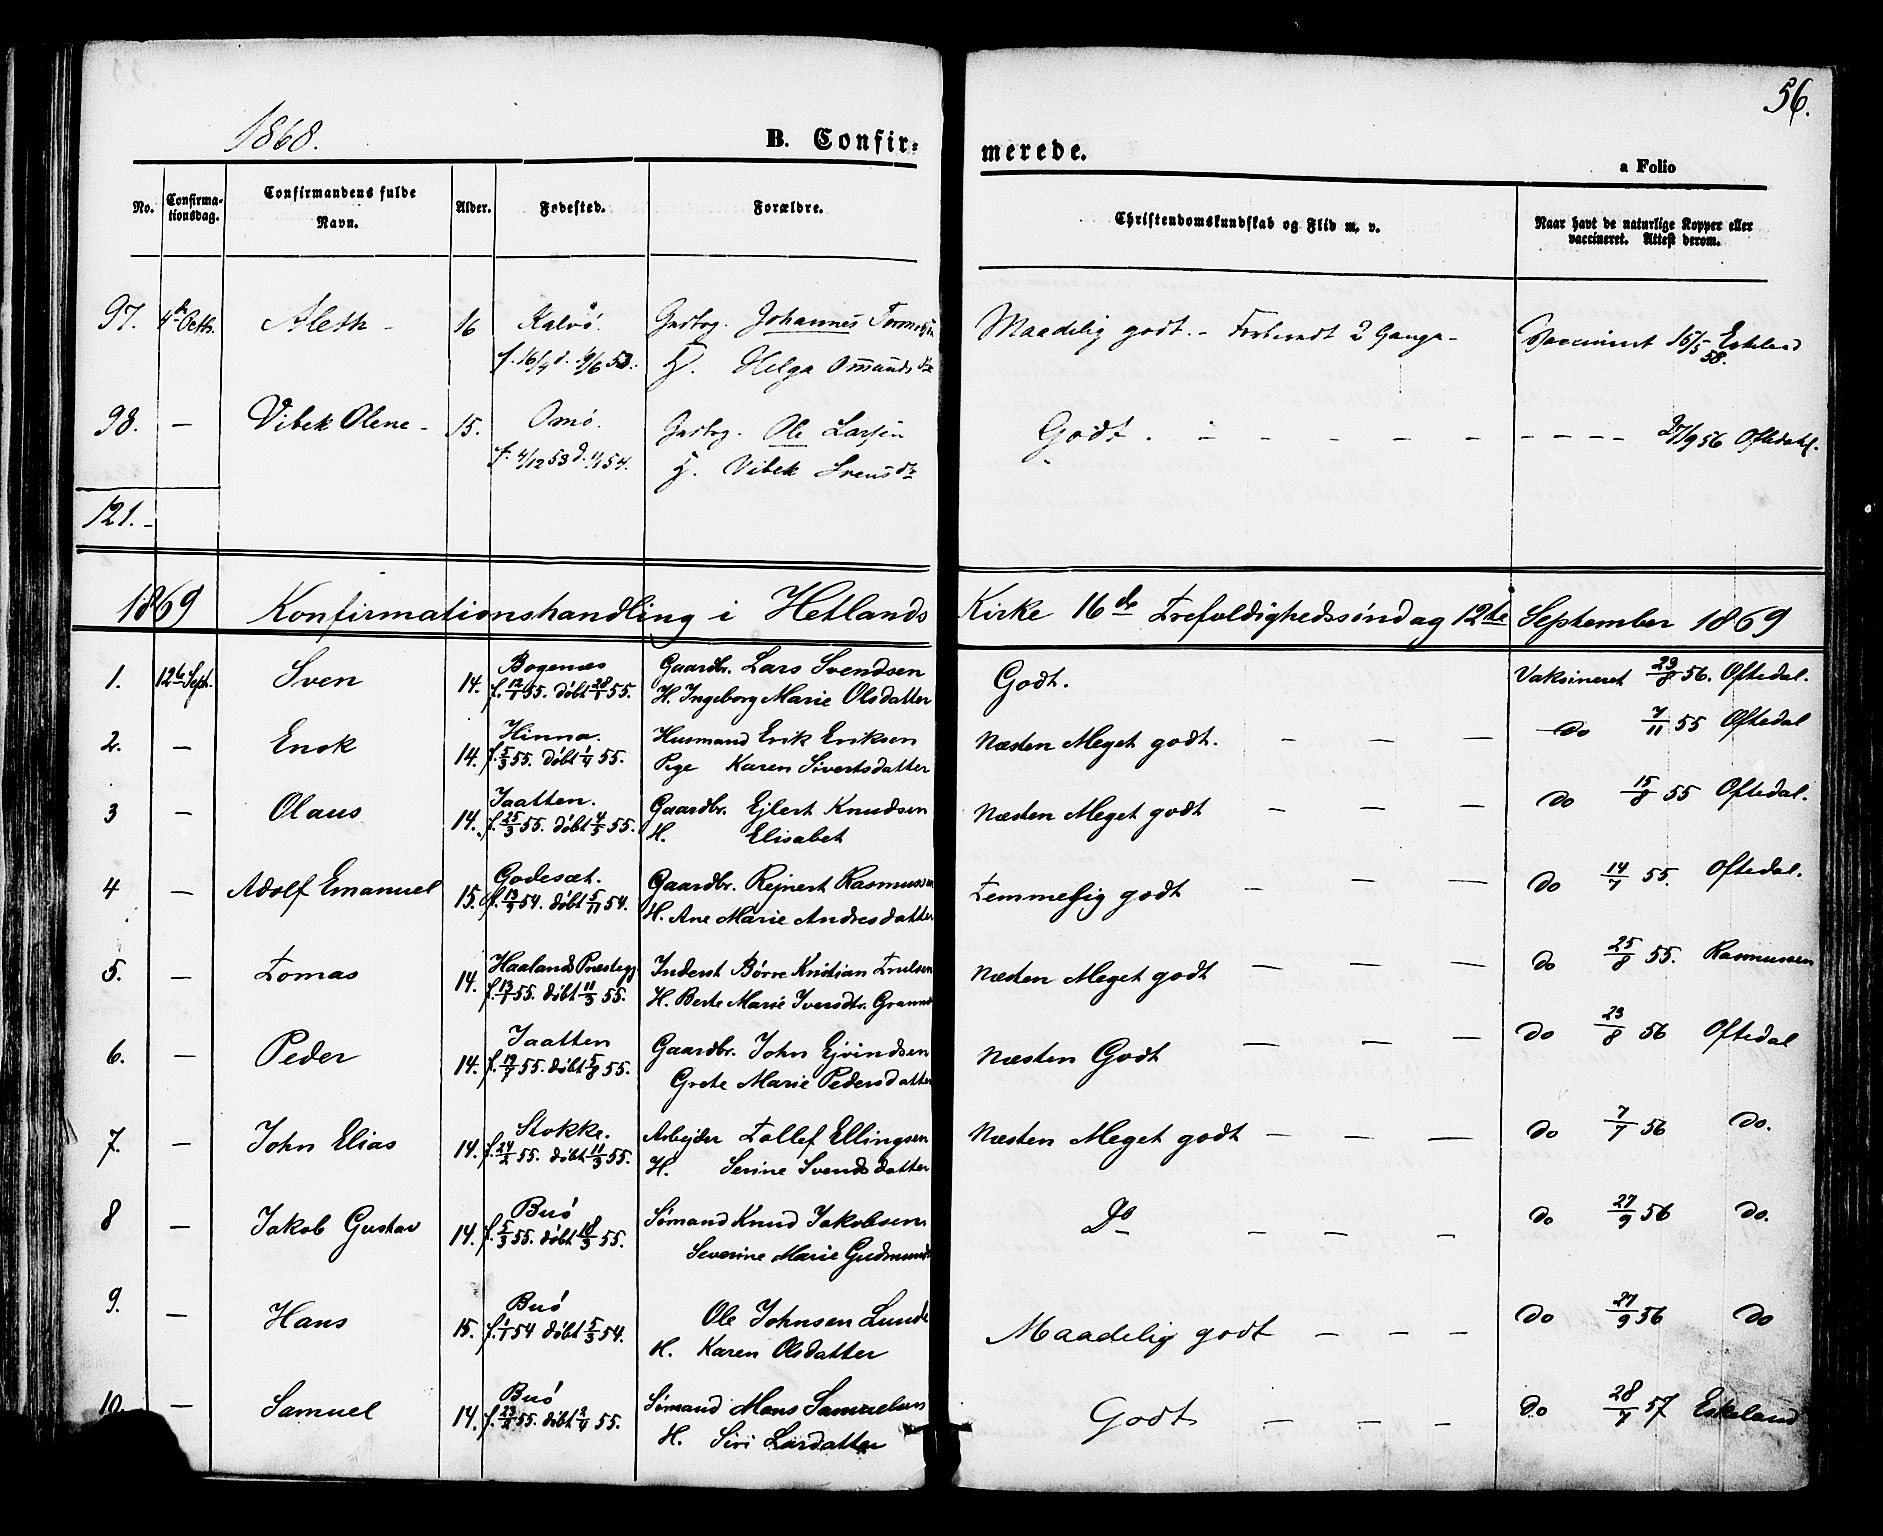 56.
1868.
B. Confirmerede.
a Folio
No.
Confirmationsdag.
Confirmandens fulde Navn.
Alder.
Fødested.
Forældre.
Christendomskundskab og Flid m. v.
Naar havt de naturlige Kopper eller vaccineret. Attest derom.
97. 4de Octb. Aleth - 16 Kalvø. Johannes Maadelig godt. - 2 Gange - Vaccineret 15/5 58. Eskeland
f. 16/4 d. 53. H. Helga Omundsdr
98. — Vibek Olene - 15. Omø. Ole Larsen Godt. - - - - - 27/9 56 Oftedahl.
f. 4/12 53 d. 54. H. Vibek Svensdr
121.-
1869 Konfirmationshandling i Hetlands Kirke 16de Trefoldighedssøndag 12te September 1869
1. 12te Sept. Sven 14. Bogenæs Gaardbr. Lars Svendsen Godt. Vaksineret 23/8 56. Oftedal.
f. 12/1 55. døbt 28/1 55. H. Ingeborg Marie Olsdatter
2. — Enok 14. Hinna. Husmand Erik Eriksen Næsten Meget godt. — — — Do 7/11 55 Oftedal
f. 5/3 55. døbt 1/4 55. Pige Karen Sivertsdatter
3 — Olaus 14. Jaatten. Gaardbr. Ejlert Knudsen Næsten Meget godt — — — Do 15/8 55 Oftedal.
f. 25/3 55. døbt 4/5 55. H. Elisabet
4 — Adolf Emanuel 15. Godesæt. Gaardbr. Rejnert Rasmussen Temmelig godt — — — Do 14/7 55. Oftedal.
54. døbt 5/11 54. H. Ane Marie Andresdatter
5. — Tomas 14. Haalands Præstegj Inderst Børre Kristian Trulsen Næsten Meget godt — — — Do 25/8 55. Rasmussen
f. 13/1 55. døbt 11/3 55. H. Berte Marie Iversdtr.
6. — Peder 14. Jaatten Gaardbr. John Ejvindsen Næsten Godt — — — Do 23/8 56 Oftedal
f. 19/7 55. døbt 5/8 55. Grete Marie Pedersdatter
7. — John Elias 14. Stokke. Arbejder Tollef Ellingsen Næsten Meget godt — — — Do 7/7 56 Do.
f. 24/2 55. døbt 11/3 55. H. Serine Svendsdatter
8 — Jakob Gustav 14. Buø Sømand Knud Jakobsen Do — — — Do 27/9 56 Do.
f. 5/3 55. døbt 18/3 55. Severine Marie Gudmunds
9. — Hans 15. Buø Ole Johnsen Lunde Maadelig godt — — — Do 27/9 56 Do
f. 1/1 54 døbt 5/3 54. H. Karen Olsdatter
10. — Samuel 14. Buø Sømand Mons Samuelsen Godt — — — Do 28/7 57 Eskeland
f. 23/2 55. døbt 2/4 55. H. Siri Larsdatter